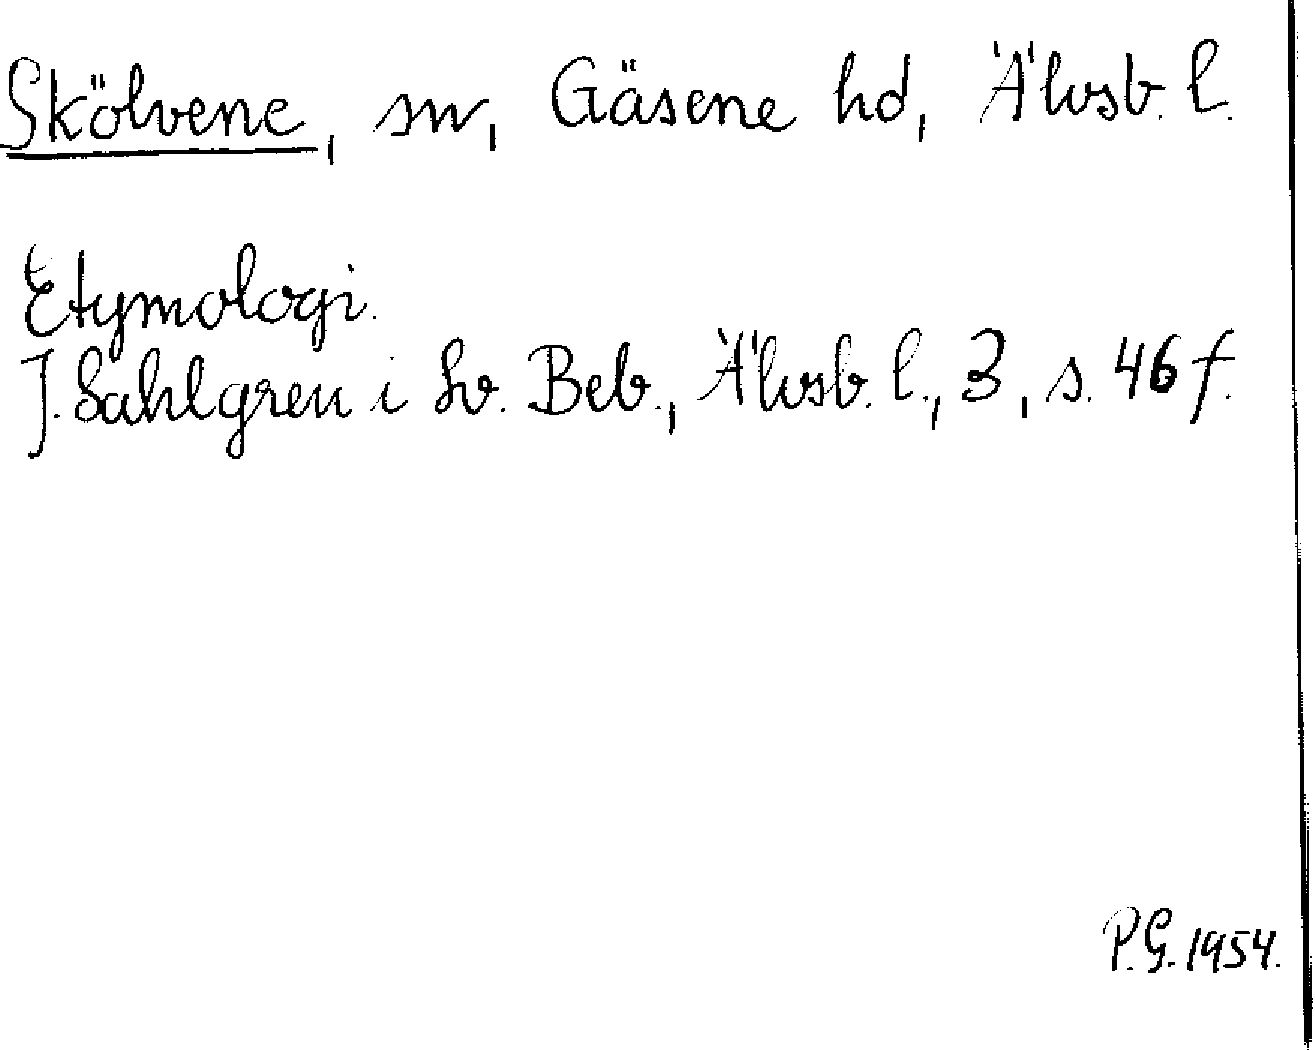 Skölvene, sn, Gäsene hd, Älvsb. l.
Etymologi.
J. Sahlgren i Sv. Beb., Älvsb. l., 3, s. 46 f.
P.G. 1954.